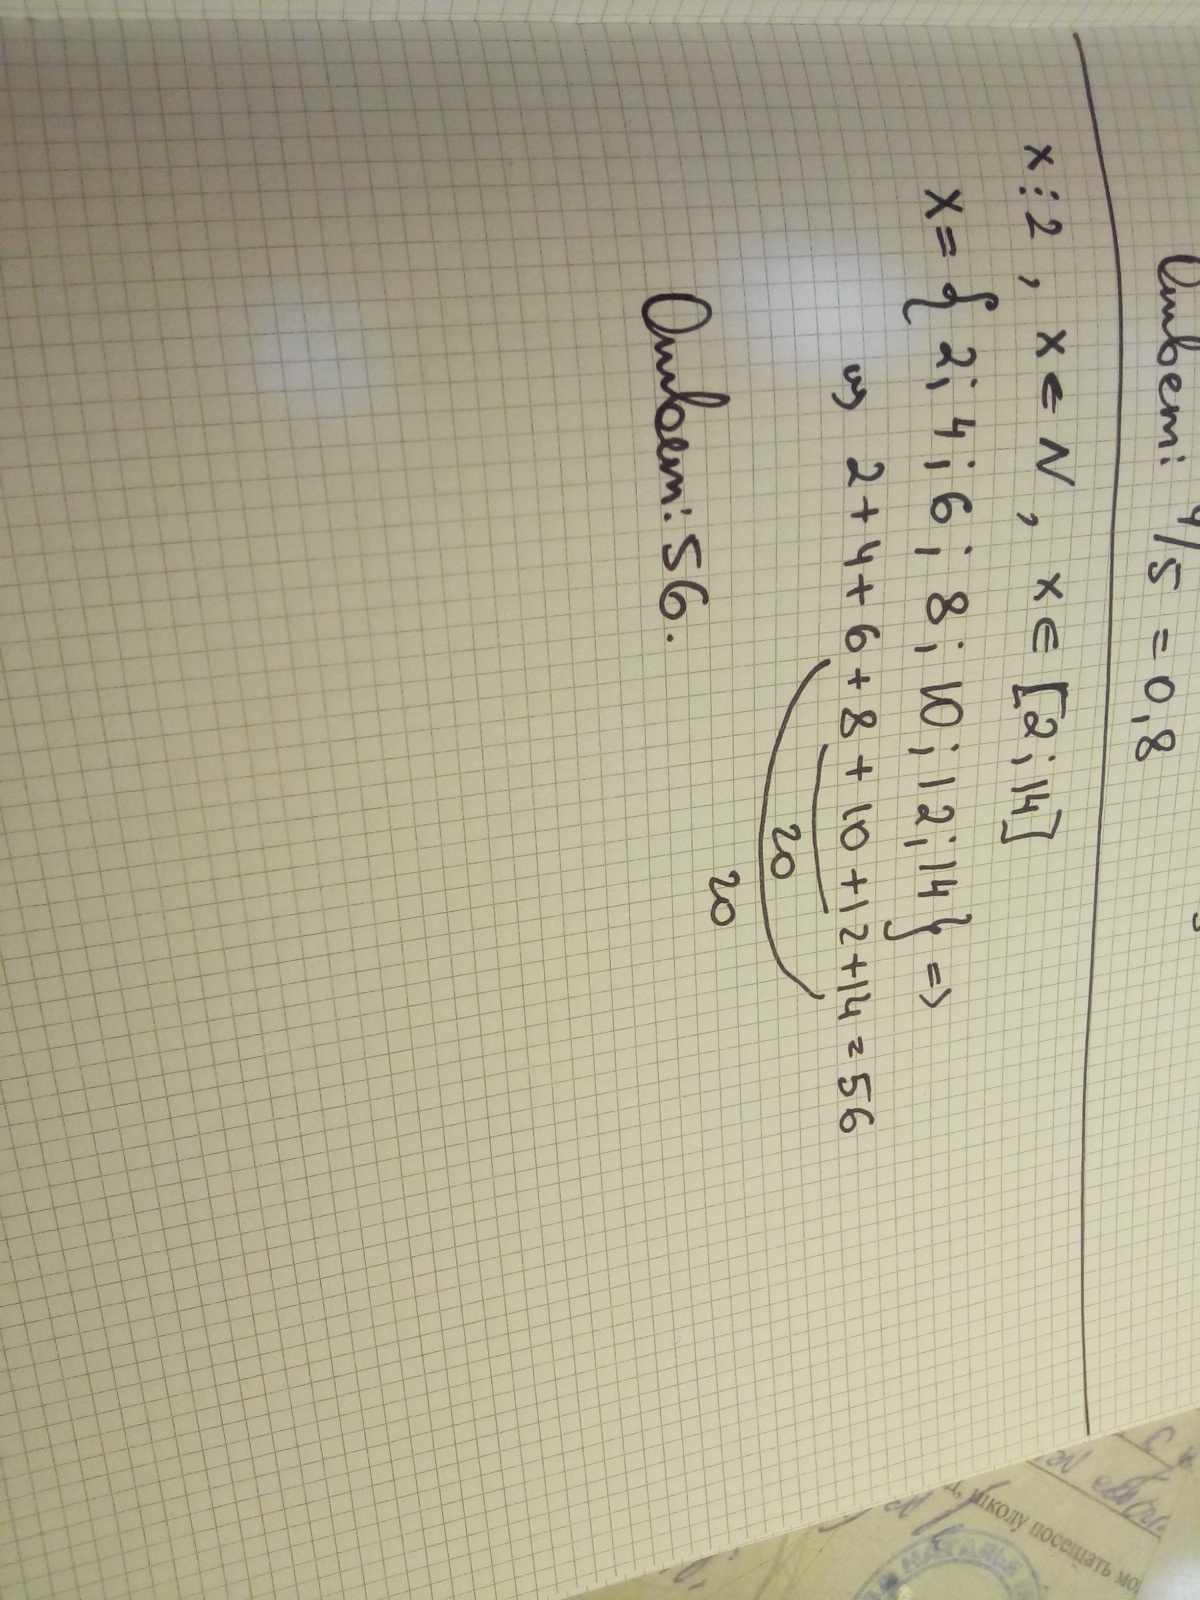 Ответ: 4/5 = 0,8
x⋮2, x ∈ N, x ∈ [2; 14]
x = { 2; 4; 6; 8; 10; 12; 14 } =>
=> 2 + 4 + 6 + 8 + 10 + 12 + 14 = 56
20
20
Ответ: 56.
школу посещать
НАТАЛЬЯ